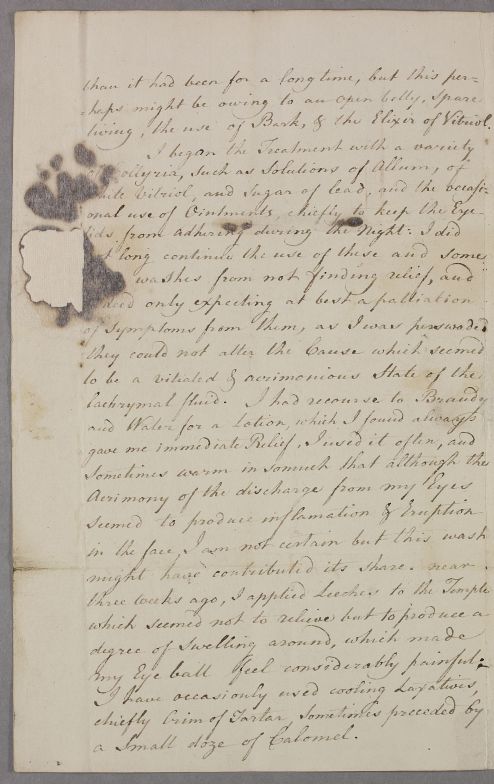 than it had been for a long time, but this per=
=haps might be owing to an open belly, Spare
living, the use of Bark, & the Elixir of Vitriol.
I began the Treatment with a variety
Collyria, Such as Solutions of Allum, of
Vitriol, and Sugar of lead, and the occasi
onal use of Ointments, chiefly to keep the Eye-
lids from adhering during the Night: I did
long continue the use of these and Some
washes from not finding relief, and
only expecting at best a palliation
of Symptoms from them, as I was perswaded
they could not alter the Cause which seemed
to be a vitiated & acrimonious State of the
lachrymal fluid. I had recourse to Brandy
and Water for a Lotion, which I found always
gave me immediate Relief, I used it often, and
Sometimes warm in somuch that although the
Acrimony of the discharge from my Eyes
Seemed to produce inflamation & Eruption
in the face, I am not certain but this wash
might have contributed its Share. near
three weeks ago, I applied Leeches to the Temple
which seemed not to relieve but to produce a
degree of Swelling around, which made
my Eye ball feel considerably painful.
I have occasionly used cooling Laxatives,
chiefly Crim of Tartar, Sometimes preceded by
a Small doze of Calomel.